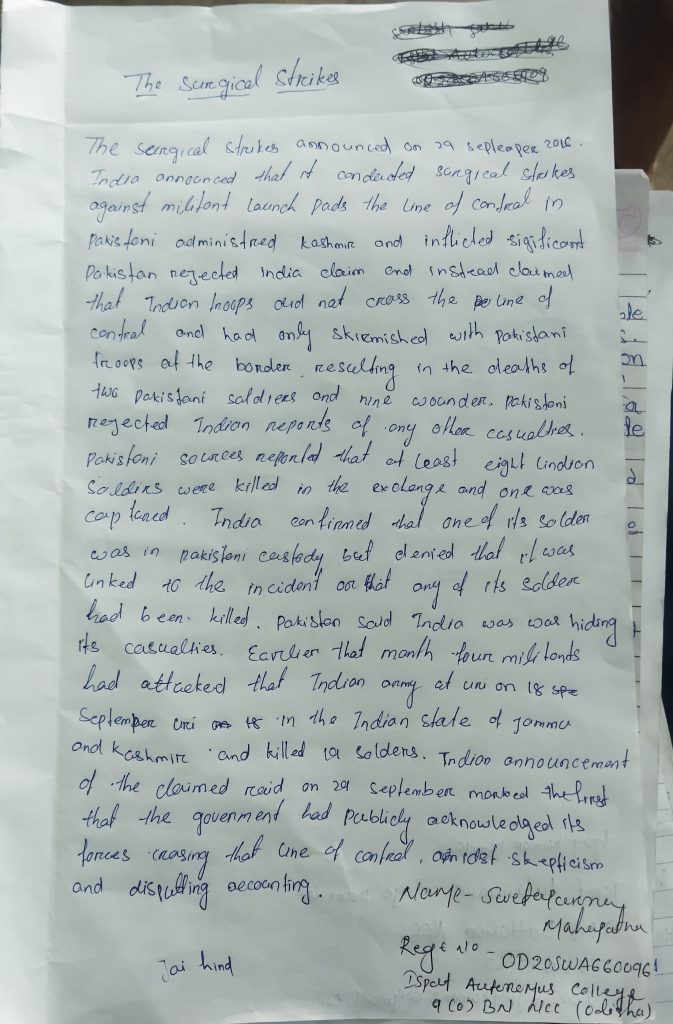 The Surgical Strikes
The surgical strikes announced on 29 septemper 2016.
India announced that it condected surgical strikes
against militant launch pads the line of control in
pakistani administred kashmir and inflicted sigificant
Pakistan rejected india claim and instead claimed
that Indian troops did not cross the line of
control and had only skirmished with pakistani
troops at the border, resulting in the deaths of
two pakistani saldiers and nine wounder. pakistani
rejected Indian reports of any other casualties.
pakistani sources reported that at least eight lindian
Soldirs were killed in the exchange and one was
captured. India confirmed that one of its solder
was in pakistani custody but denied that it was
linked to the incident or that any of its solder
had been killed. Pakistan said India was was hiding
its casualties. Earlier that month four militands
had attacked that Indian army at uri on 18 spe
September uri in the Indian state of jammu
and Kashmir and killed 19 solders. Indian announcement
of the claimed raid on 29 september marked the first
that the goverment had publicly acknowledged its
forces crasing that line of control, amidst skepticism
and disputting accounting.
Name- Mahapatra
Jai hind
Regt No - OD20SWA6600961
Ispat Autonomus College
9 (O) BN NCC (Odisha)